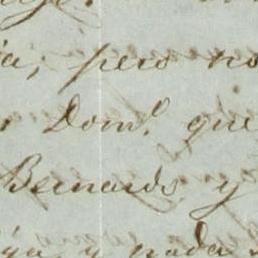 pero no
Dom.º que
Bernardo y
y nada